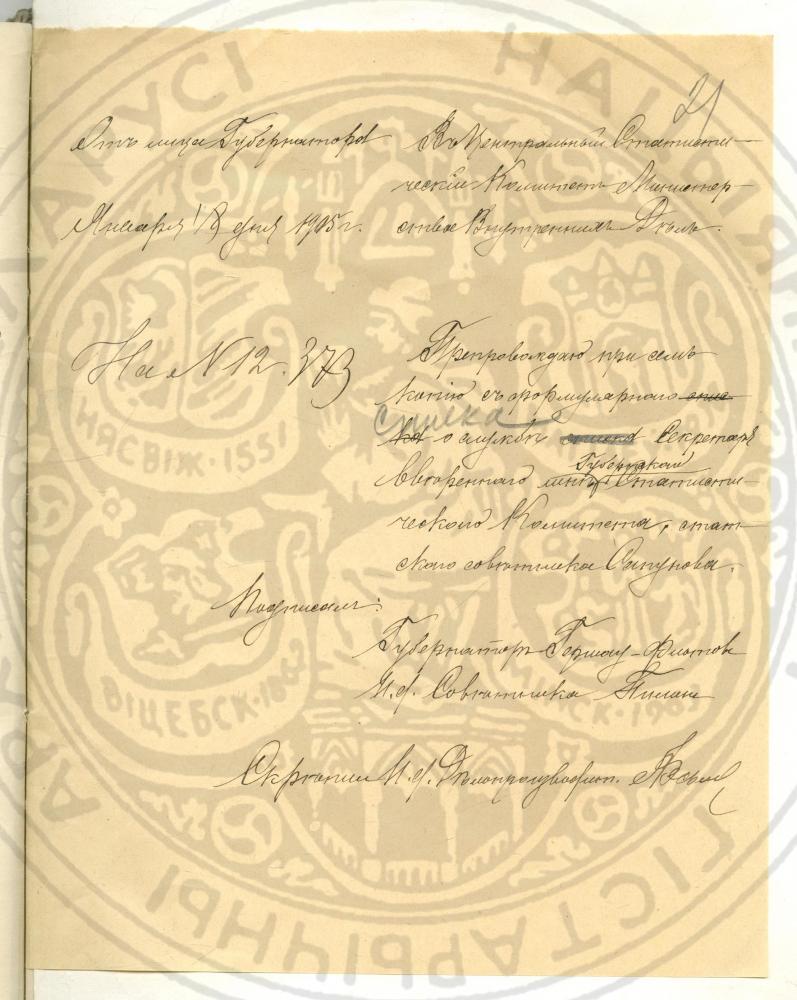 21
Отъ лица Губернатора
Января 18 дня 1905 г.
На № 12.373
Въ Центральный Статисти-
ческій Комитетъ Министер-
ства Внутреннихъ Дѣлъ.
Препровождаю при семъ
копію съ формулярнаго спис-
ка списка о службѣ Секретаря
Губернскаго
ввѣреннаго мнѣ Статисти-
ческаго Комитета, стат-
скаго совѣтника Сапунова.
Подписали:
Губернаторъ Гершау-Флотовъ
И. д. Совѣтника
Скрѣпилъ И. д. Дѣлопроизводит.
НАЦЫЯНАЛЬНЫ
ГІСТАРЫЧНЫ
АРХІЎ БЕЛАРУСІ
НЯСВІЖ·1551
ВІЦЕБСК·18